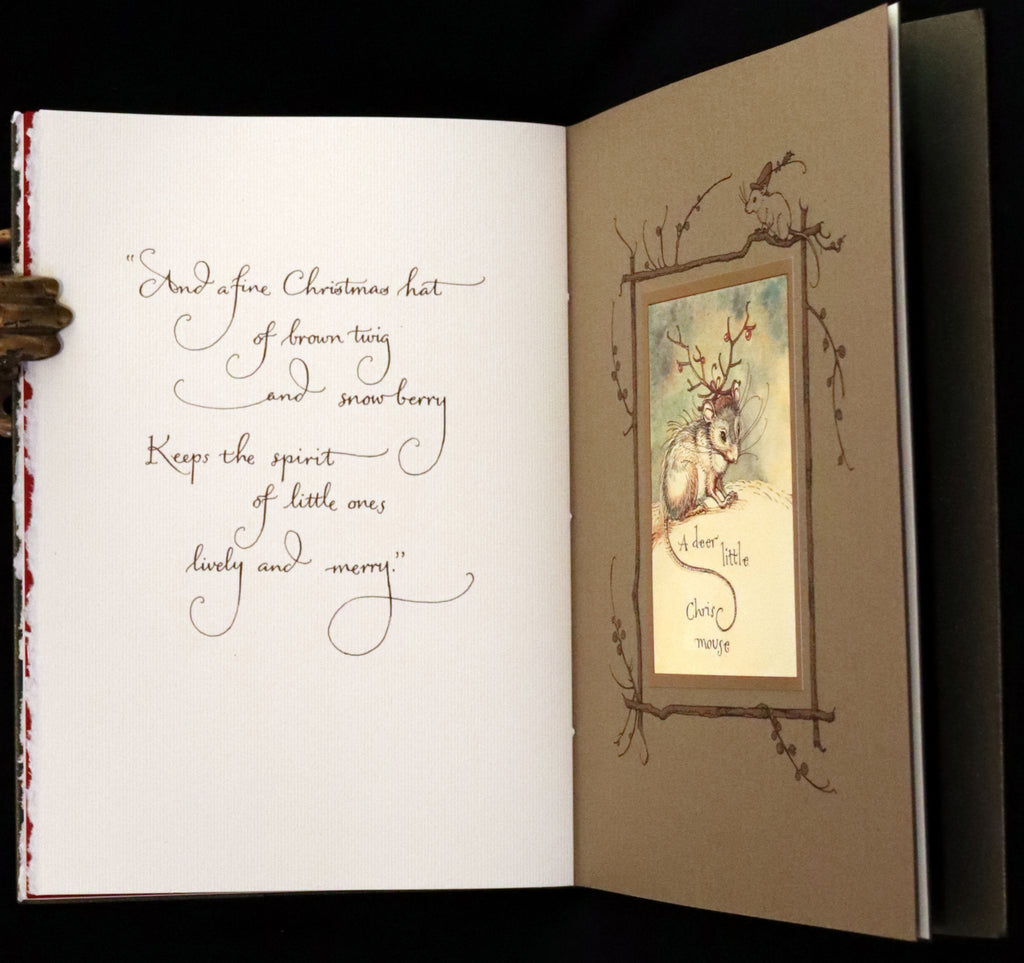 "And a fine Christmas hat
of brown twig
and snowberry
Keeps the spirit
of little ones
lively and merry."
A deer
little
Chris
mouse